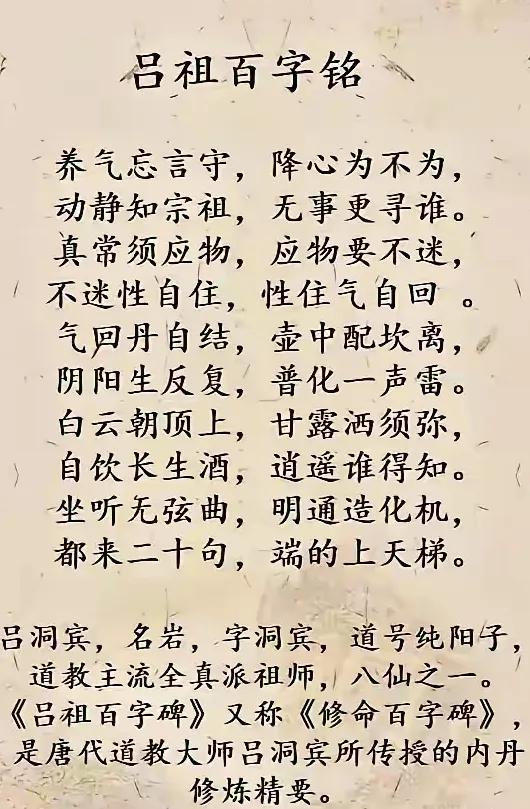 吕祖百字铭
养气忘言守，降心为不为，
动静知宗祖，无事更寻谁。
真常须应物，应物要不迷，
不迷性自住，性住气自回 。
气回丹自结，壶中配坎离，
阴阳生反复，普化一声雷。
白云朝顶上，甘露洒须弥，
自饮长生酒，逍遥谁得知。
坐听无弦曲，明通造化机，
都来二十句，端的上天梯。
吕洞宾，名岩，字洞宾，道号纯阳子，
道教主流全真派祖师，八仙之一。
《吕祖百字碑》又称《修命百字碑》，
是唐代道教大师吕洞宾所传授的内丹
修炼精要。